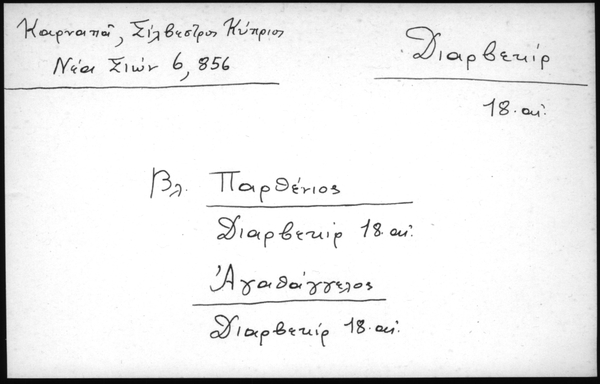 Καρναπᾶ, Σίλβεστρος Κύπριος
Νέα Σιών 6, 856
Διαρβεκίρ
18. αἰ.
Βλ. Παρθένιος
Διαρβεκίρ 18. αἰ.
Ἀγαθάγγελος
Διαρβεκίρ 18. αἰ.